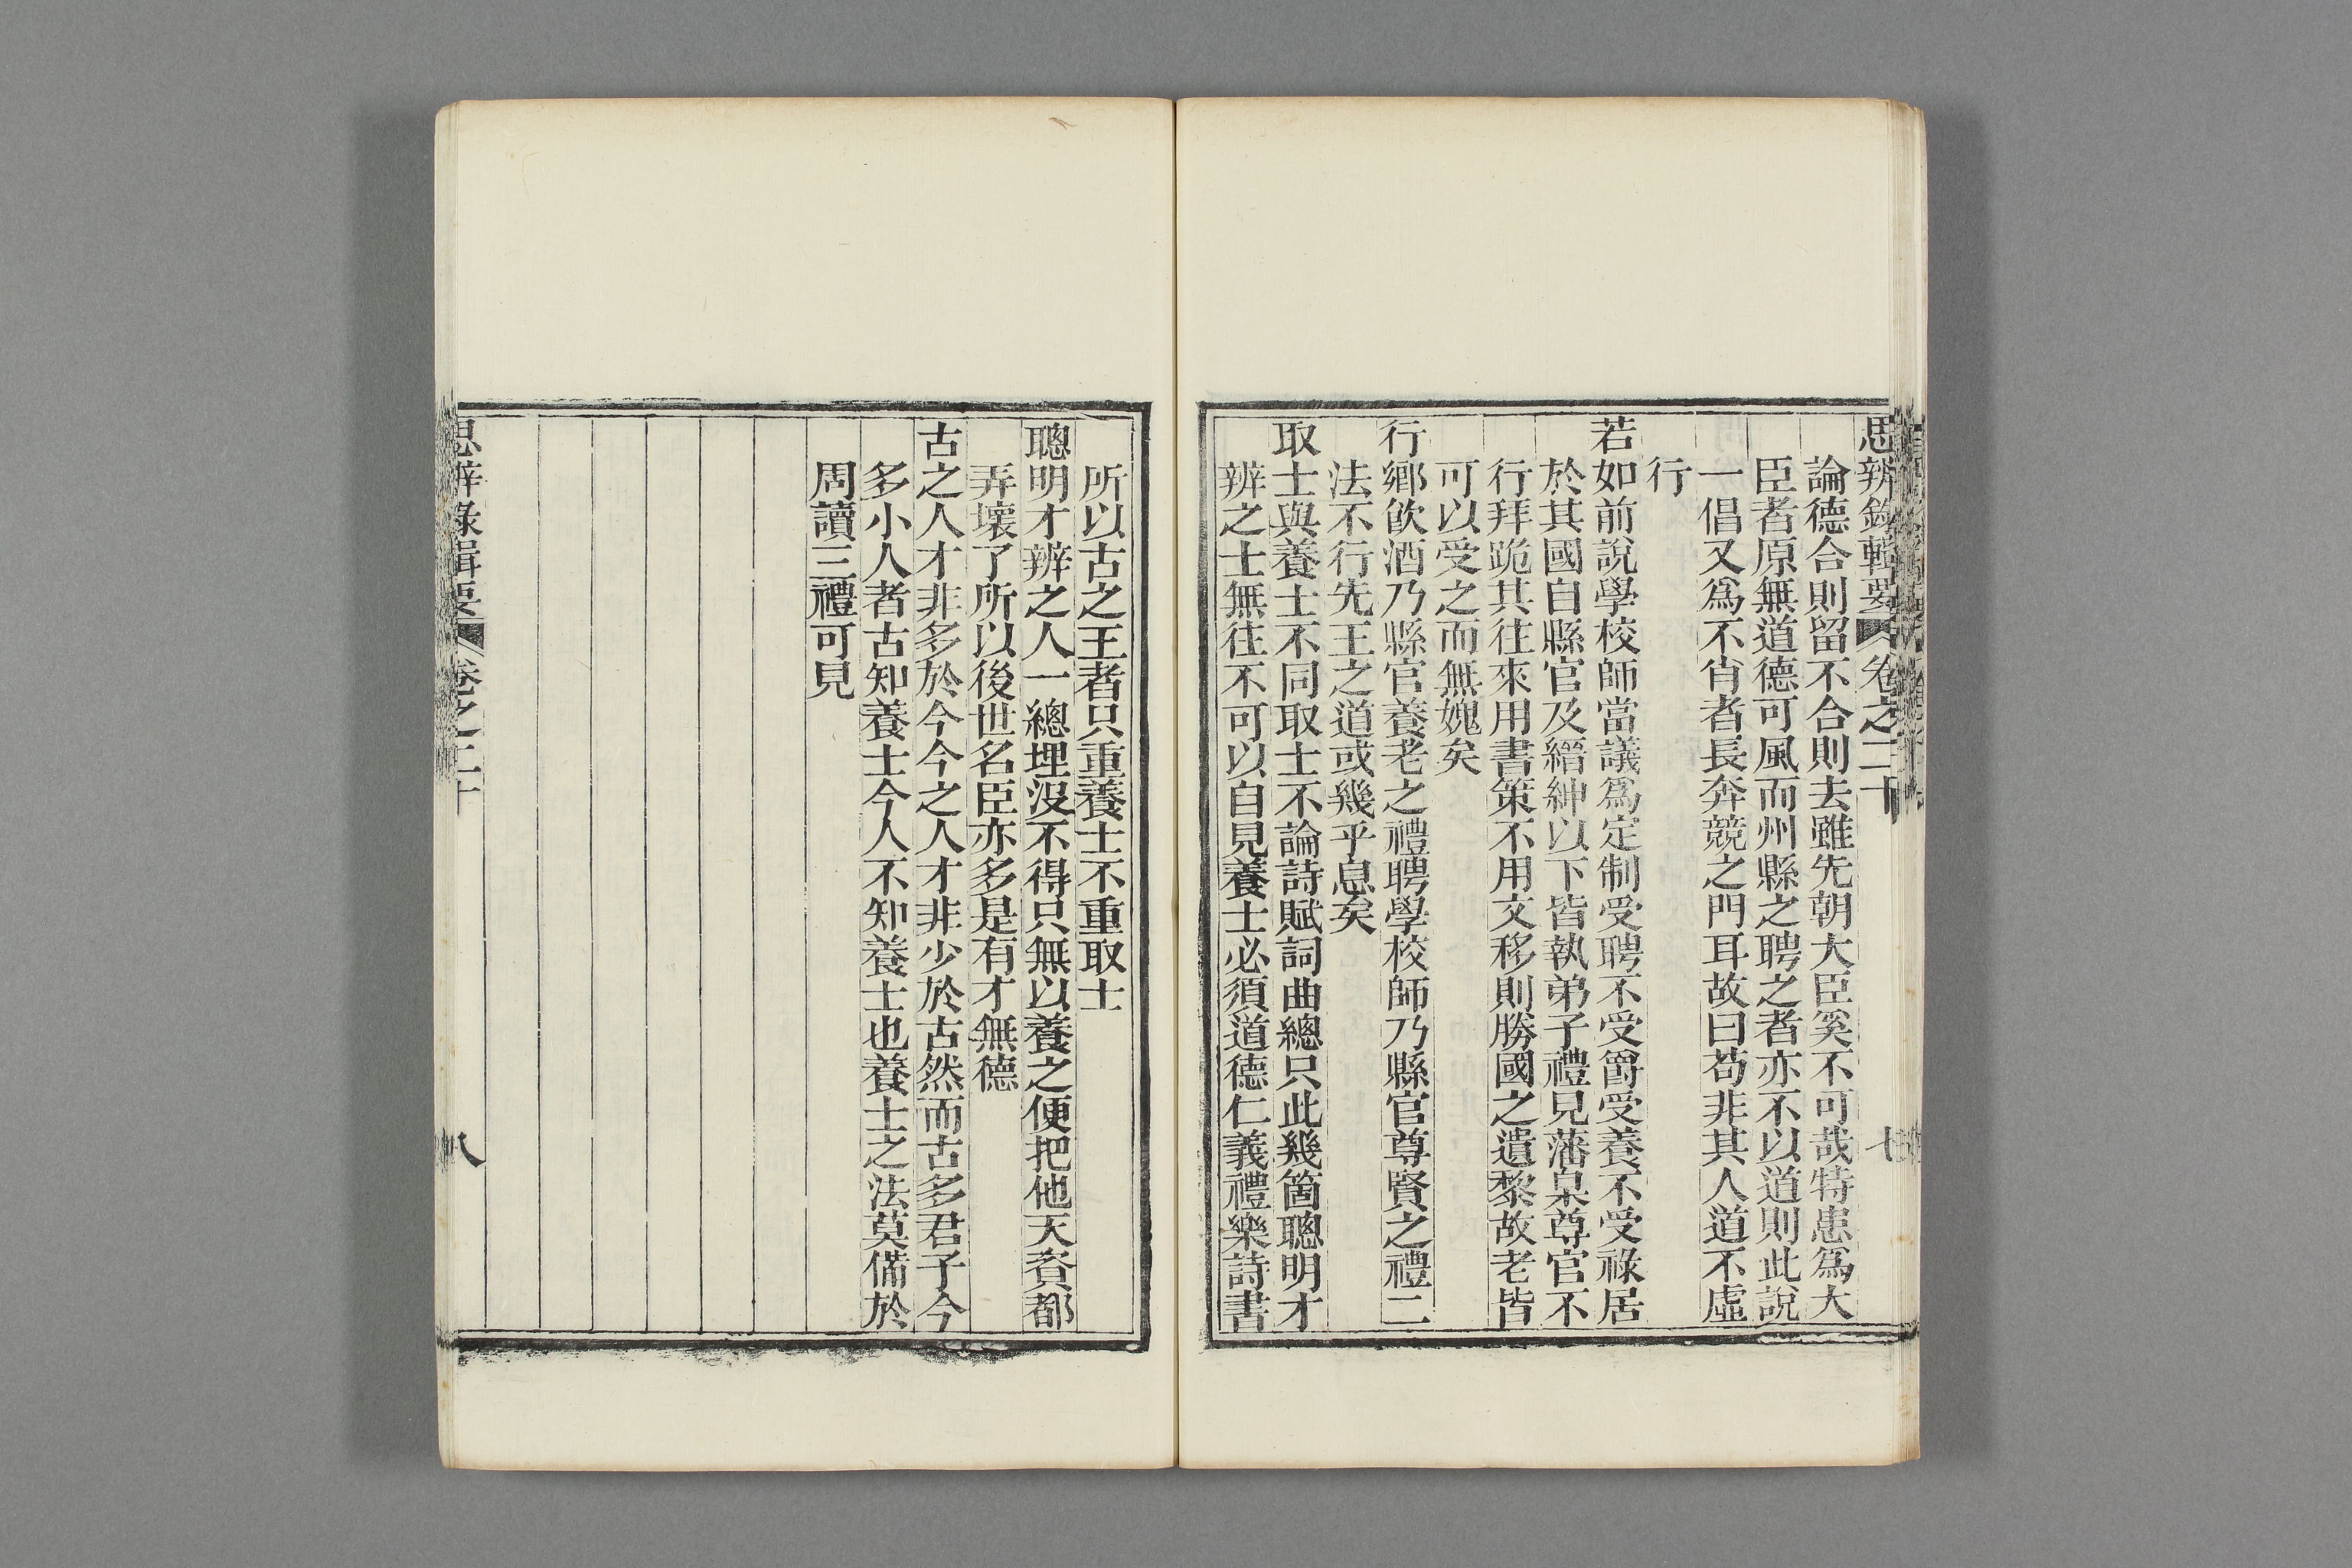 思辨錄輯要 卷之二十 七
論德合則留不合則去雖先朝大臣奚不可哉特患爲大
臣者原無道德可風而州縣之聘之者亦不以道則此說
一倡又爲不肖者長奔競之門耳故曰苟非其人道不虛
行
若如前說學校師當議爲定制受聘不受爵受養不受祿居
於其國自縣官及縉紳以下皆執弟子禮見藩臬尊官不
行拜跪其往來用書策不用文移則勝國之遺黎故老皆
可以受之而無媿矣
行鄉飮酒乃縣官養老之禮聘學校師乃縣官尊賢之禮二
法不行先王之道或幾乎息矣
取士與養士不同取士不論詩賦詞曲總只此幾箇聰明才
辨之士無往不可以自見養士必須道德仁義禮樂詩書
所以古之王者只重養士不重取士
聰明才辨之人一總埋沒不得只無以養之便把他天資都
弄壞了所以後世名臣亦多是有才無德
古之人才非多於今今之人才非少於古然而古多君子今
多小人者古知養士今人不知養士也養士之法莫備於
周讀三禮可見
思辨錄輯要 卷之二十 八